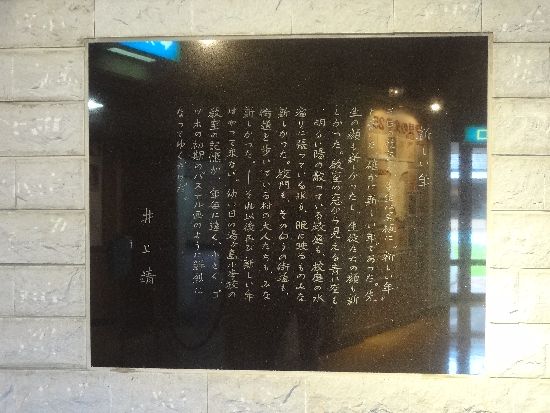 新しい年
に「新しい年」
確かに新しい年であった。先
生の顔も新しかったし、生徒たちの顔も新
しかった。教室の窓から見える青い空も
、明るい陽の散っている校庭も、校庭の水
溜りに張っている氷も、眼に映るものみな
新しかった。校門も、その向うの街道も、
街道を歩いている村の大人たちも、みな
新しかった。——それ以後、再び新しい年
はやって来ない。幼い日の湯ヶ島小学校の
教室の記憶が、年毎に遠く、小さく、ゴ
ッホの初期のパステル画のように鮮烈に
なってゆくだけだ。
井上靖